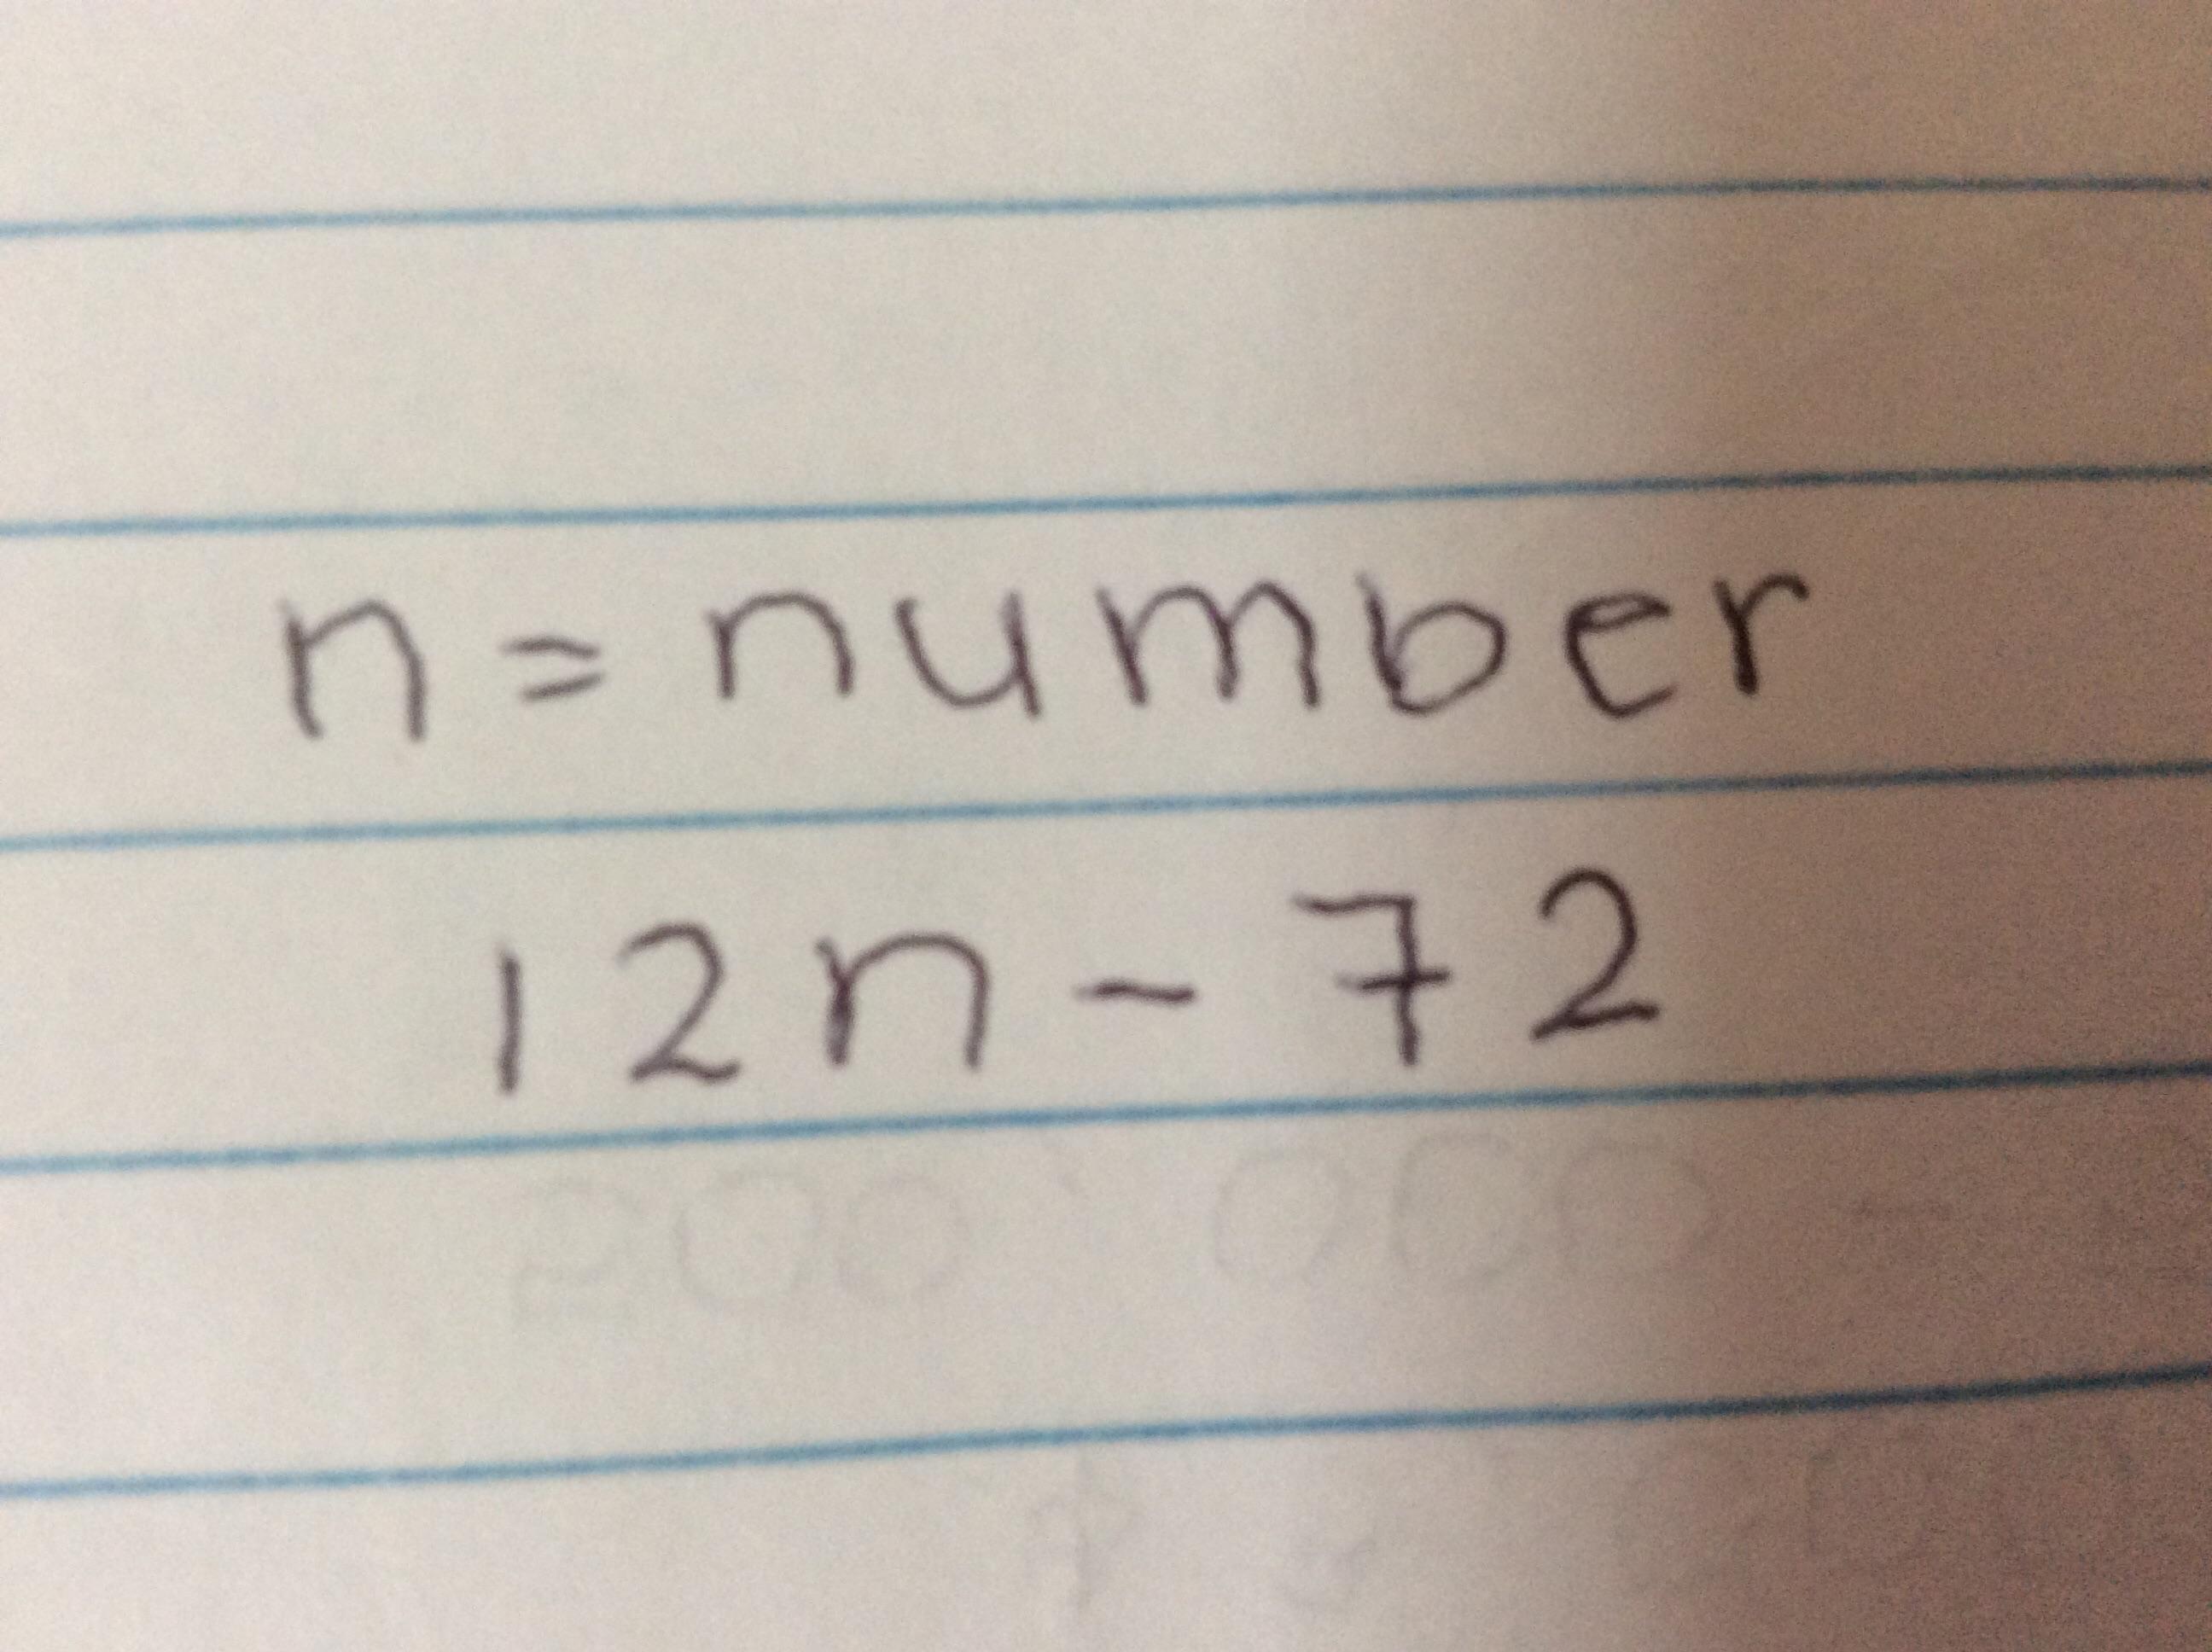 n = number
12n - 72